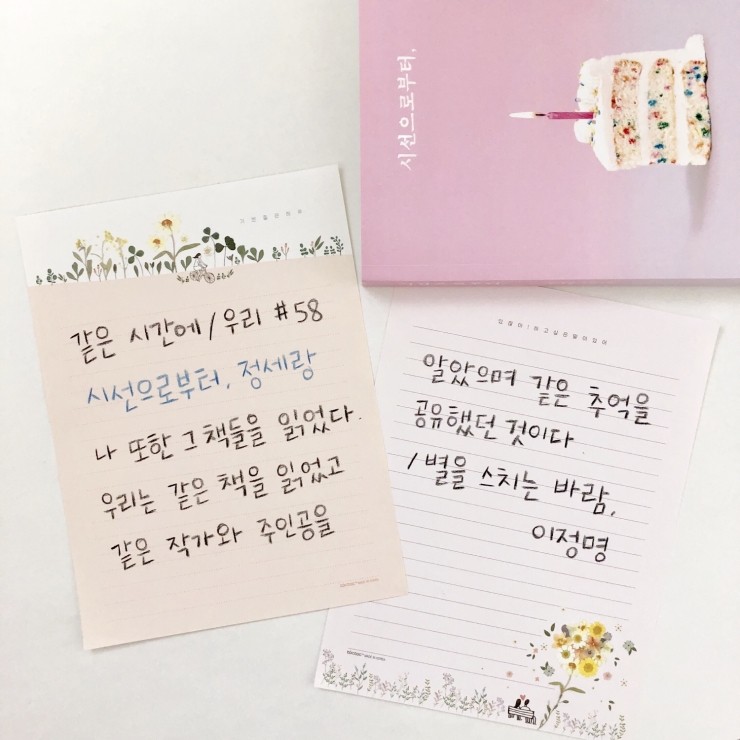 시선으로부터,
같은 시간에/우리 #58
시선으로부터, 정세랑
나 또한 그 책들을 읽었다.
우리는 같은 책을 읽었고
같은 작가와 주인공을
알았으며 같은 추억을
공유했던 것이다
/별을 스치는 바람,
이정명